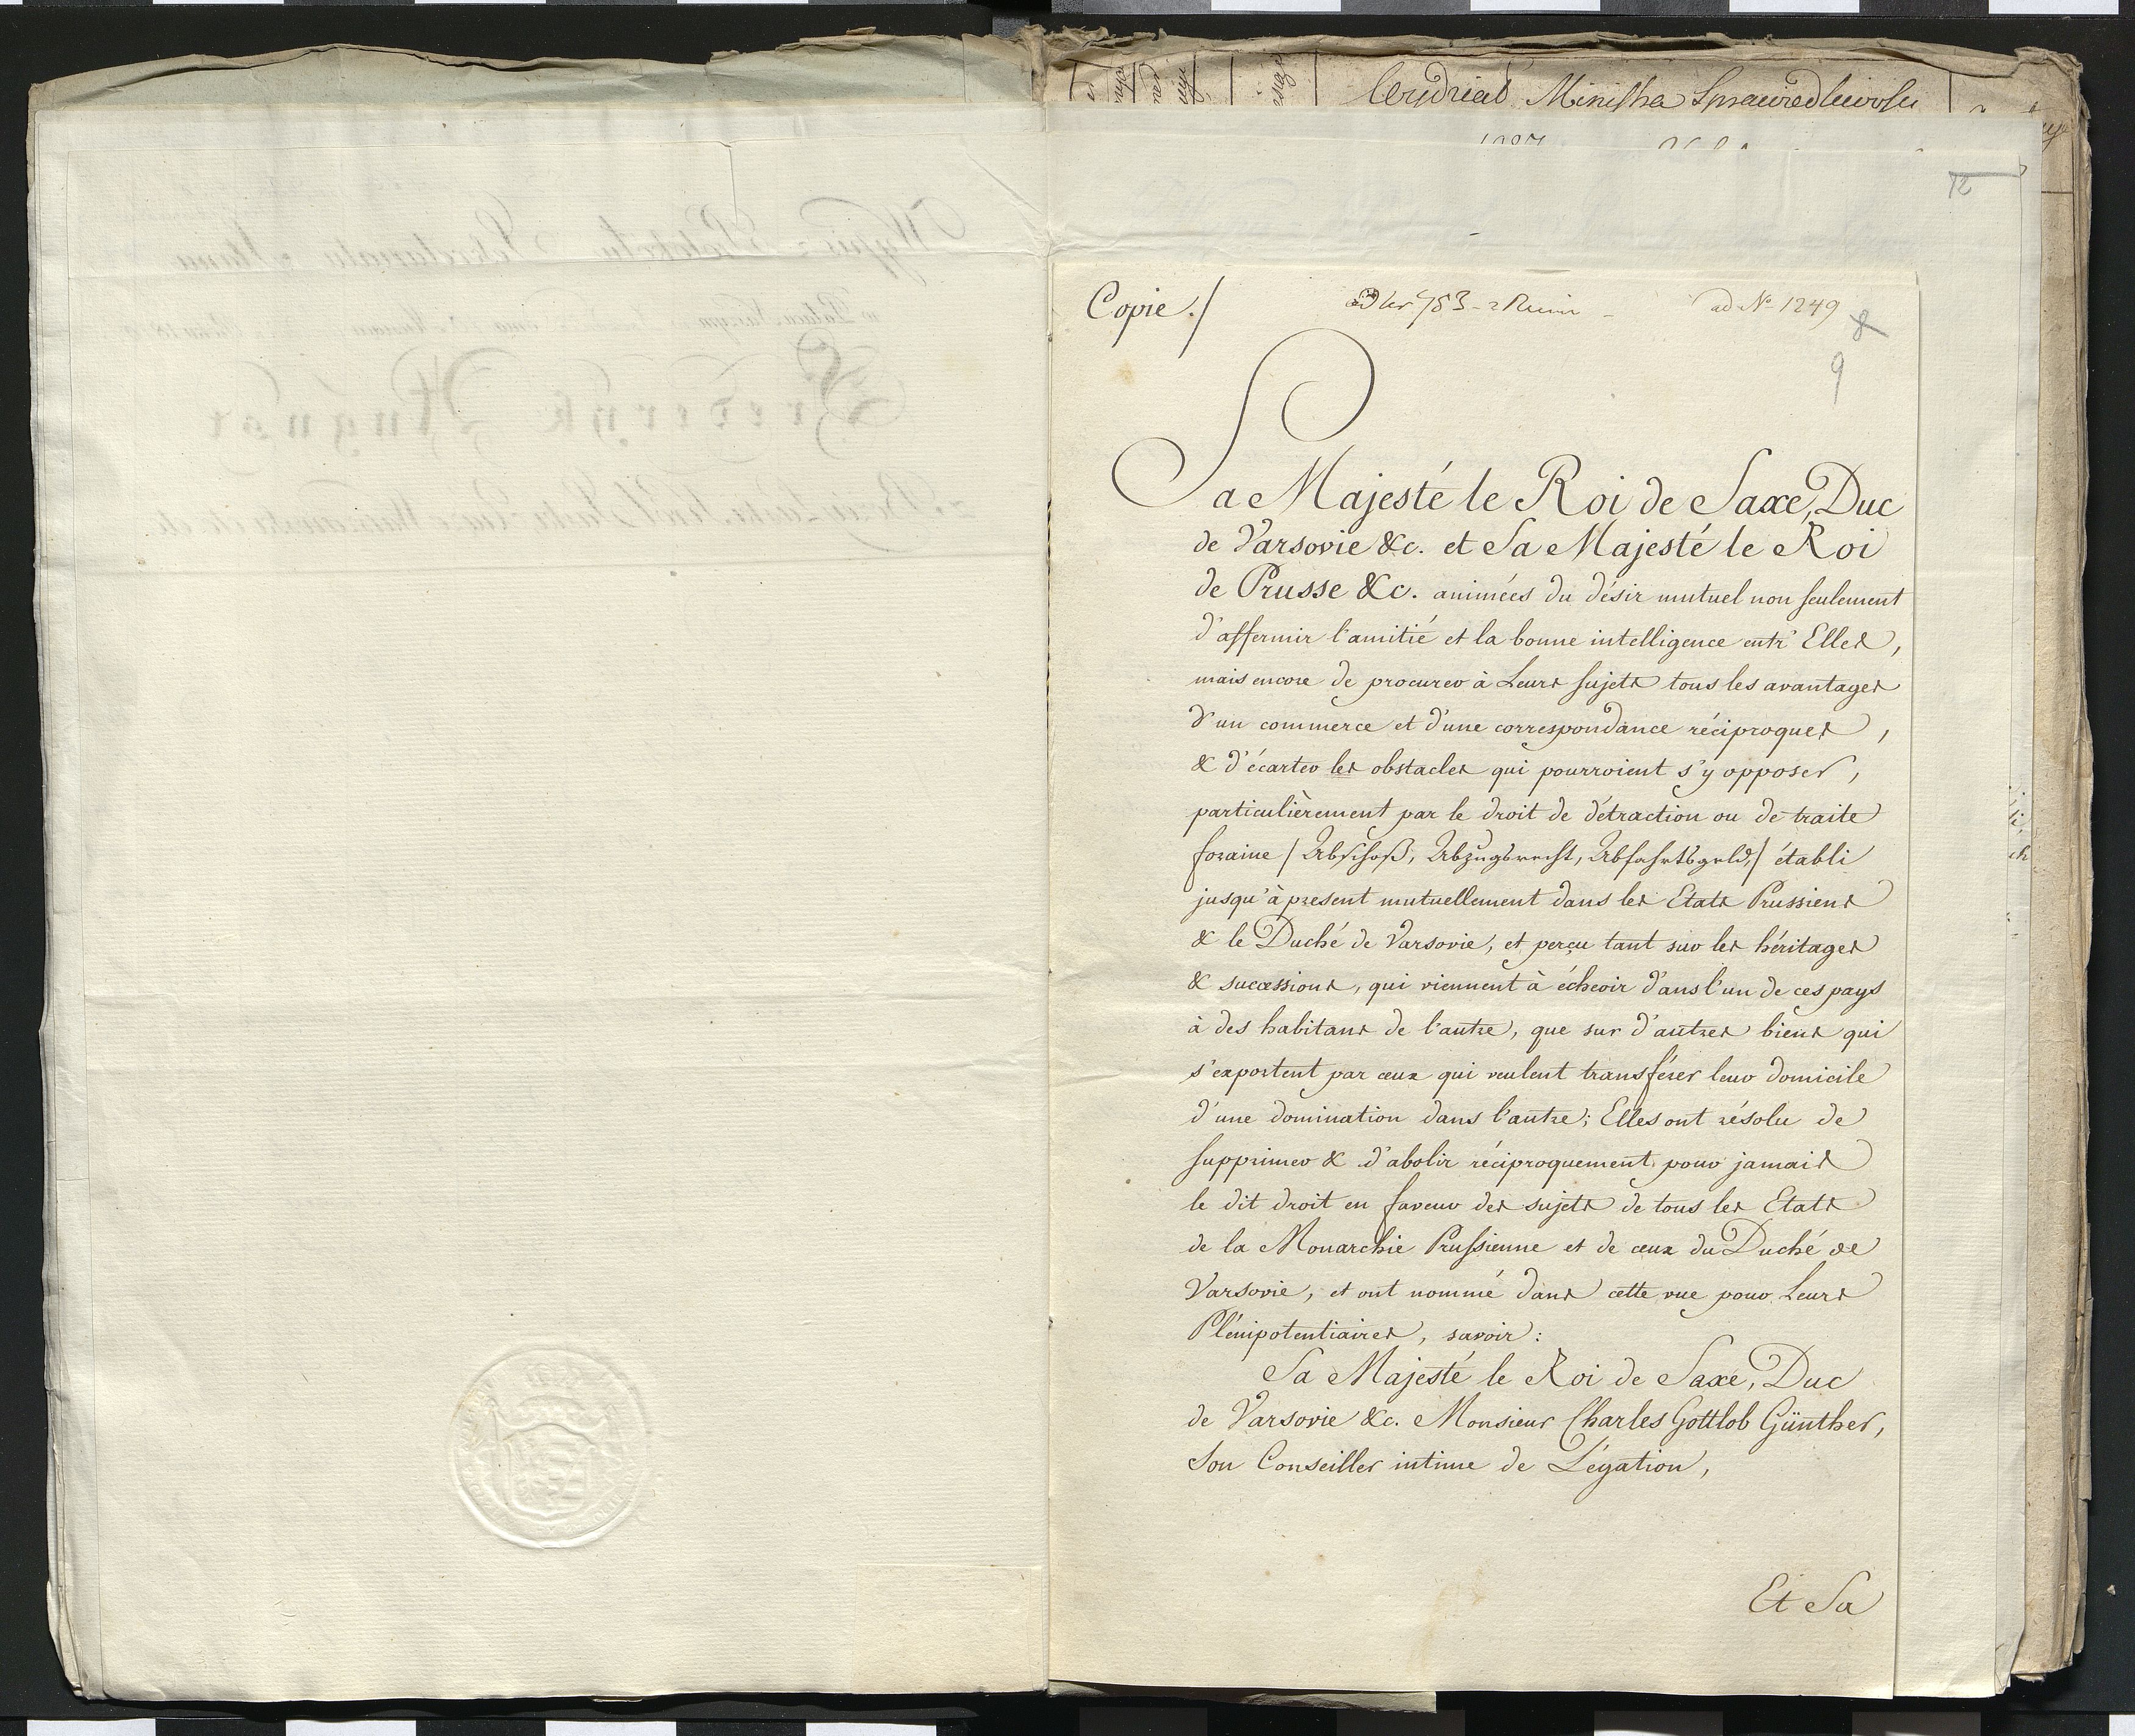 Wydział Ministra Sprawiedliwości
12
Copie./
ad N. 1249
8
9
Sa Majesté le Roi de Saxe, Duc
de Varsovie &c. et Sa Majesté le Roi
de Prusse &c. animées du désir mutuel non seulement
d'affermir l'amitié et la bonne intelligence entr' Elles,
mais encore de procurer à Leurs sujets tous les avantages
d'un commerce et d'une correspondance réciproques,
& d'écarter les obstacles qui pourroient s'y opposer,
particulièrement par le droit de détraction ou de traite
foraine /Abschoß, Abzugsrecht, Abfahrtsgeld,/ établi
jusqu'à présent mutuellement dans les Etats Prussiens
& le Duché de Varsovie, et perçu tant sur les héritages
& successions, qui viennent à écheoir dans l'un de ces pays
à des habitans de l'autre, que sur d'autres biens qui
s'exportent par ceux qui veulent transférer leur domicile
d'une domination dans l'autre; Elles ont résolu de
supprimer & d'abolir réciproquement pour jamais
le dit droit en faveur des sujets de tous les Etats
de la Monarchie Prussienne et de ceux du Duché de
Varsovie, et ont nommé dans cette vue pour Leurs
Plénipotentiaires, savoir:
Sa Majesté le Roi de Saxe, Duc
de Varsovie &c. Monsieur Charles Gottlob Günther,
Son Conseiller intime de Légation,
Et Sa